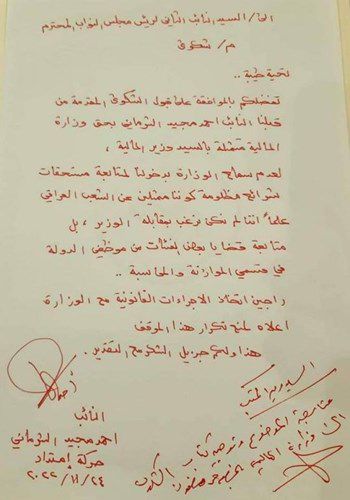 الى/ السيد النائب الثاني لرئيس مجلس النواب المحترم
م/ شكوى
تحية طيبة ..
تفضلكم بالموافقة على قبول الشكوى المقدمة من
قبلنا النائب احمد مجيد الشرماني بحق وزارة
المالية متمثلة بالسيد وزير المالية ،
لعدم سماح الوزارة بدخولنا لمتابعة مستحقات
شرائح مظلومة كوننا ممثلين عن الشعب العراقي
علماً اننا لم نكن نرغب بمقابلة الوزير ، بل
متابعة قضايا بعض الفئات من موظفي الدولة
في قسمي الموازنة والمحاسبة ..
راجين اتخاذ الاجراءات القانونية مع الوزارة
اعلاه لمنع تكرار هذا الموقف
هذا ولكم جزيل الشكر مع التقدير .
النائب
احمد مجيد الشرماني
حركة إمتداد
٢٠٢٢/١١/٢٤
السيد مدير المكتب
مفاتحة الموضوع وتوجيه كتاب
الى وزارة المالية